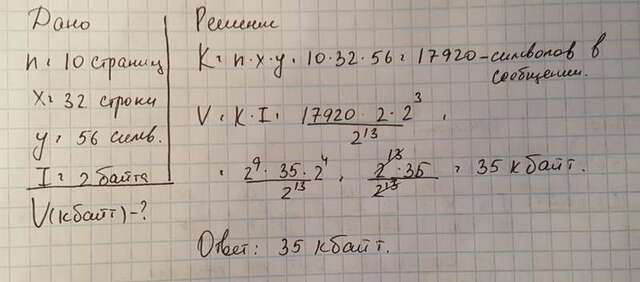 Дано
n = 10 страниц
x = 32 строки
y = 56 симв.
I = 2 байта
V(кбайт) - ?
Решение
K = n · x · y = 10 · 32 · 56 = 17920 - символов в
сообщении.
V = K · I = 17920 · 2 · 2³ / 2¹³ =
= 2⁹ · 35 · 2⁴ / 2¹³ = 2¹³ · 35 / 2¹³ = 35 кбайт.
Ответ: 35 кбайт.